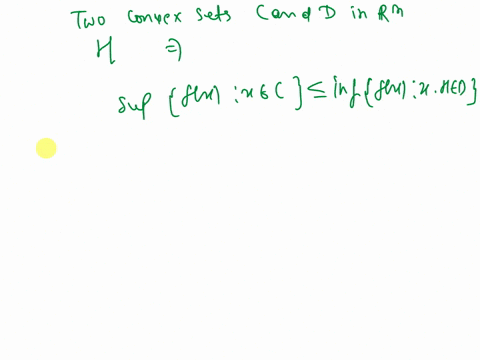 Two convex sets C and D in Rn
H ⇒
Sup {f(x) : x ∈ C} ≤ inf {f(x) : x. H∈D}